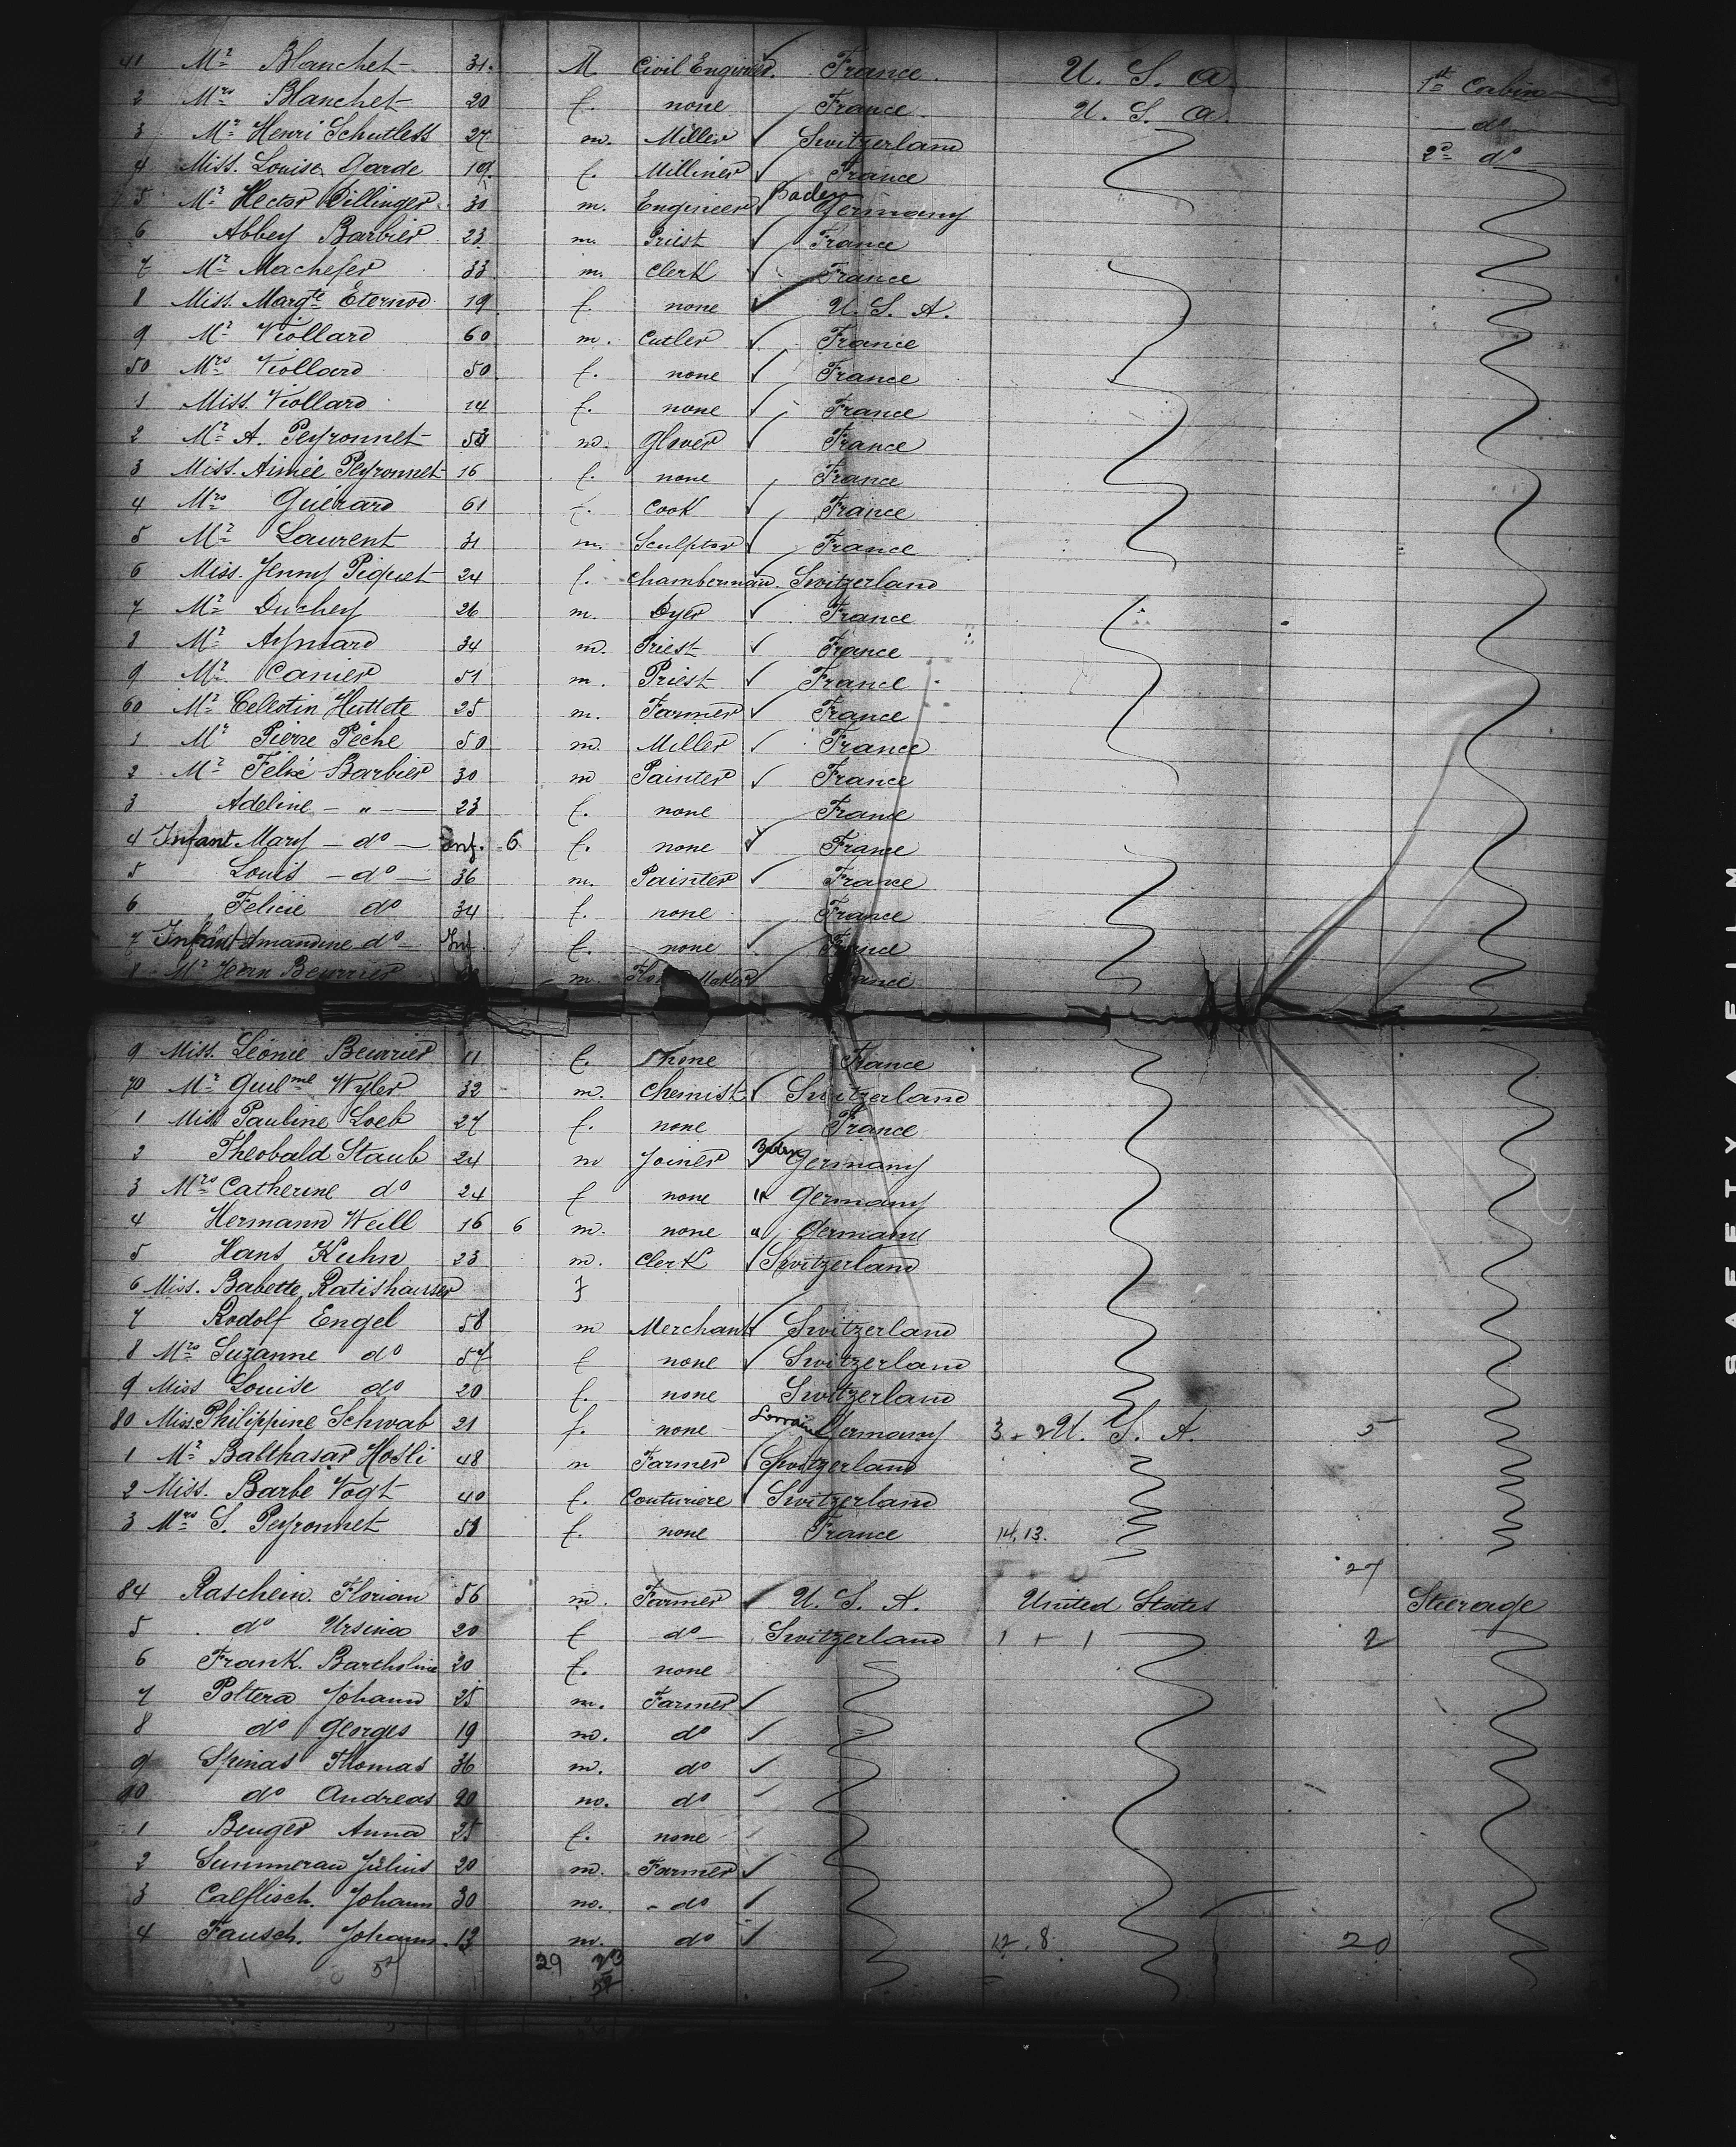 41 Mr Blanchet 31. M Civil Engineer. France. U. S. A 1st Cabin
2 Mrs Blanchet 20 f. none France. U. S. A. do
3 Mr Henri Schutless 27 m. Miller Switzerland 2d do
4 Miss. Louise Garde 19. f. Milliner France
5 Mr Hector Dillinger 30 m. Engineer Baden Germany
6 Abbey Barbier 23 m. Priest France
7 Mr Machefer 33 m. Clerk France
8 Miss. Margte Eternod 19 f. none U. S. A.
9 Mr Viollard 60 m. Cutler France
50 Mrs Viollard 50 f. none France
1 Miss. Viollard 14 f. none France
2 Mr A. Peyronnet m. Glover France
3 Miss. Aimée Peyronnet 16 f. none France
4 Mrs Guérard 61 f. Cook France
5 Mr Laurent 31 m. Sculptor France
6 Miss. Jenny Piquet 24 f. Chambermaid. Switzerland
7 Mr Duchey 26 m. Dyer France
8 Mr Aymard 34 m. Priest France
9 Mr Canier 51 m. Priest France
60 Mr Celestin Huttete 25 m. Farmer France
1 Mr Pierre Pèche 50 m. Miller France
2 Mr Felix Barbier 30 m Painter France
3 Adeline - " - 23 f. none France
4 Infant Mary - do - Inf. 6 f. none France
5 Louis - do - 36 m. Painter France
6 Felicie do 34 f. none France
7 Infant Amandine do - Inf. 9 f. none France
8 Mr Jean Beurrier m. Maker France
9 Miss. Léonie Beurrier 11 f. none France
70 Mr Guilme Wyler 32 m. Chemist Switzerland
1 Miss Pauline Loeb 27 f. none France
2 Theobald Staub 24 m Joiner Baden Germany
3 Mrs Catherine do 24 f none " Germany
4 Hermann Weill 16 6 m. none " Germany
5 Hans Kuhn 23 m. Clerk Switzerland
6 Miss. Babette Ratishauser f
7 Rodolf Engel 58 m Merchant Switzerland
8 Mrs Suzanne do 57 f none Switzerland
9 Miss Louise do 20 f. none Switzerland
80 Miss. Philippine Schwab 21 f. none Lorraine Germany 3 - 2 U. S. A. 5
1 Mr Balthasar Hosli 48 m Farmer Switzerland
2 Miss. Barbe Vogt 40 f. Couturiere Switzerland
3 Mrs S. Peyronnet f. none France 14, 13.
27
84 Raschein. Florian 56 m. Farmer U. S. A. United States Steerage
5 do Ursina 20 f do Switzerland 1 + 1 2
6 Frank. Bartholine 20 f. none
7 Poltera Johann 25 m. Farmer
8 do Georges 19 m. do
9 Spinas Thomas 36 m. do
90 do Andreas 20 m. do
1 Benger Anna 25 f. none
2 Summerau Julius 20 m. Farmer
3 Calflisch. Johann 30 m. do
4 Fausch. Johann. 13 m. do 12. 8 20
29 23
52
SAFETY FILM